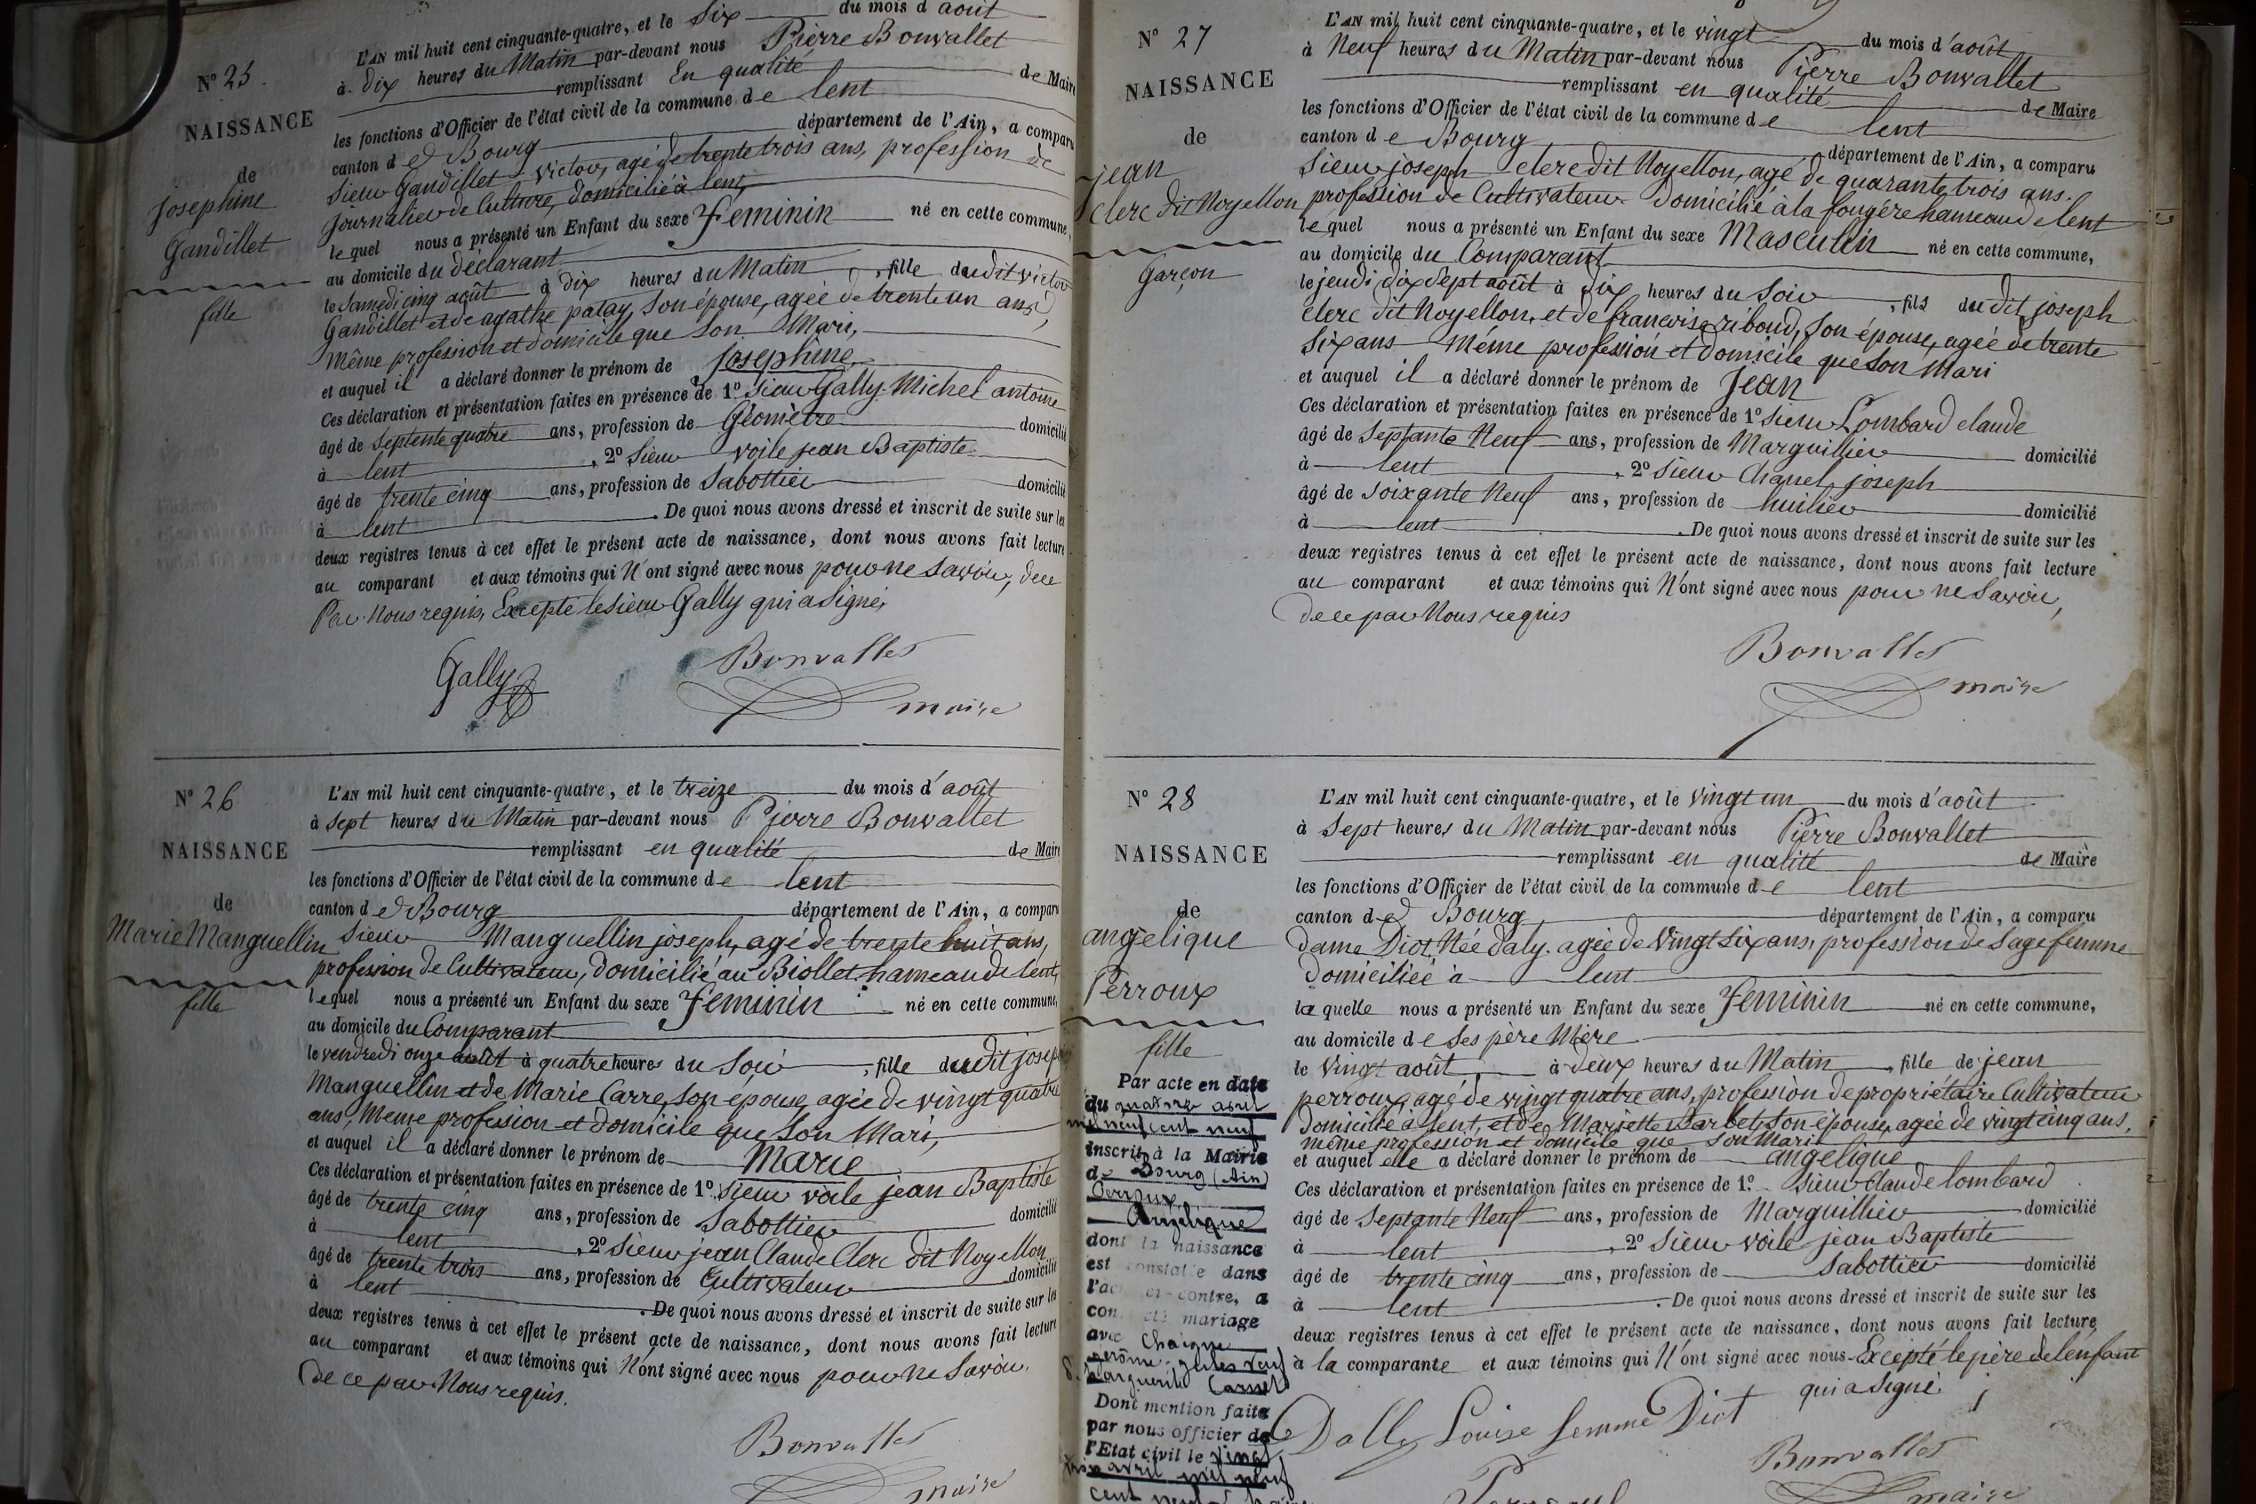 N° 25
NAISSANCE
de
josephine
Gandillet
fille
L'AN mil huit cent cinquante-quatre, et le six du mois d'août
à dix heures du Matin par-devant nous Pierre Bonvallet
remplissant En qualité de Maire
les fonctions d'Officier de l'état civil de la commune de lent
canton de Bourg département de l'Ain, a comparu
Sieur Gandillet Victor, agé de trente trois ans, profession de
journalier de Culture, domicilié à lent,
lequel nous a présenté un Enfant du sexe feminin né en cette commune,
au domicile du déclarant
le Samedi cinq août à dix heures du Matin, fille dudit victor
Gandillet et de agathe palay, son épouse, agée de trente un ans,
même profession et domicile que son Mari,
et auquel il a déclaré donner le prénom de josephine
Ces déclaration et présentation faites en présence de 1° Sieur Gally Michel antoine
âgé de septente quatre ans, profession de Géomètre domicilié
à lent, 2° Sieur voile jean Baptiste
âgé de trente cinq ans, profession de Sabottier domicilié
à lent. De quoi nous avons dressé et inscrit de suite sur les
deux registres tenus à cet effet le présent acte de naissance, dont nous avons fait lecture
au comparant et aux témoins qui N'ont signé avec nous pour ne Savoir, de ce
Par Nous requis, Excepté le sieur Gally qui a signé,
Gally Bonvallet
maire
N° 26
NAISSANCE
de
Marie Manguellin
fille
L'AN mil huit cent cinquante-quatre, et le treize du mois d'août
à sept heures du Matin par-devant nous Pierre Bonvallet
remplissant en qualité de Maire
les fonctions d'Officier de l'état civil de la commune de lent
canton de Bourg département de l'Ain, a comparu
Sieur Manguellin joseph, agé de trente huit ans,
profession de Cultivateur, domicilié au Biollet hameau de lent,
lequel nous a présenté un Enfant du sexe feminin né en cette commune,
au domicile du Comparant
le vendredi onze août à quatre heures du Soir, fille dudit joseph
Manguellin et de Marie Carre, son épouse agée de vingt quatre
ans, Meme profession et domicile que Son Mari,
et auquel il a déclaré donner le prénom de Marie
Ces déclaration et présentation faites en présence de 1° Sieur voile jean Baptiste
âgé de trente cinq ans, profession de Sabottier domicilié
à lent, 2° Sieur jean Claude Clerc dit Noyellon
âgé de trente trois ans, profession de Cultivateur domicilié
à lent. De quoi nous avons dressé et inscrit de suite sur les
deux registres tenus à cet effet le présent acte de naissance, dont nous avons fait lecture
au comparant et aux témoins qui N'ont signé avec nous pour ne Savoir
de ce par Nous requis.
Bonvallet
maire
N° 27
NAISSANCE
de
jean
clerc dit Noyellon
Garçon
L'AN mil huit cent cinquante-quatre, et le vingt du mois d'août
à Neuf heures du Matin par-devant nous Pierre Bonvallet
remplissant en qualité de Maire
les fonctions d'Officier de l'état civil de la commune de lent
canton de Bourg département de l'Ain, a comparu
Sieur joseph clerc dit Noyellon, agé de quarante trois ans.
profession de Cultivateur domicilié à la fougére hameau de lent
lequel nous a présenté un Enfant du sexe Masculin né en cette commune,
au domicile du Comparant
le jeudi dix Sept août à dix heures du Soir, fils du dit joseph
clerc dit Noyellon, et de francoise riboud, son épouse, agée de trente
Six ans Méme profession et domicile que Son Mari
et auquel il a déclaré donner le prénom de Jean
Ces déclaration et présentation faites en présence de 1° Sieur Lombard claude
âgé de Septante Neuf ans, profession de Marguillier domicilié
à lent, 2° Sieur Chanel joseph
âgé de soixante Neuf ans, profession de huilier domicilié
à lent. De quoi nous avons dressé et inscrit de suite sur les
deux registres tenus à cet effet le présent acte de naissance, dont nous avons fait lecture
au comparant et aux témoins qui N'ont signé avec nous pour ne Savoir,
de ce par Nous requis
Bonvallet
maire
N° 28
NAISSANCE
de
angelique
Perroux
fille
Par acte en date
du quatorze avril
mil neuf cent neuf
inscrit à la Mairie
de Bourg (Ain)
Perroux
Angélique
dont la naissance
est constatée dans
l'acte ci-contre, a
contracté mariage
avec Chaigne
veuf
Marguerite
Dont mention faite
par nous officier de
l'Etat civil le vingt
avril mil neuf
cent
L'AN mil huit cent cinquante-quatre, et le vingt un du mois d'août
à Sept heures du Matin par-devant nous Pierre Bonvallet
remplissant en qualité de Maire
les fonctions d'Officier de l'état civil de la commune de lent
canton de Bourg département de l'Ain, a comparu
dame Diot Née daly. agée de Vingt six ans, profession de Sagefemme
domiciliée à lent
laquelle nous a présenté un Enfant du sexe feminin né en cette commune,
au domicile de Ses père Mère
le Vingt août à deux heures du Matin, fille de jean
perroux, agé de vingt quatre ans, profession de propriétaire Cultivateur
domicilié à lent, et de Mariette Barbet, son épouse, agée de vingt cinq ans,
même profession et domicile que son Mari
et auquel elle a déclaré donner le prénom de angelique
Ces déclaration et présentation faites en présence de 1° Sieur Claude lombard
âgé de Septante Neuf ans, profession de Marguillier domicilié
à lent, 2° Sieur voile jean Baptiste
âgé de trente cinq ans, profession de Sabottier domicilié
à lent. De quoi nous avons dressé et inscrit de suite sur les
deux registres tenus à cet effet le présent acte de naissance, dont nous avons fait lecture
à la comparante et aux témoins qui N'ont signé avec nous Excepté le père de l'enfant
qui a Signé.
Dally Louise femme Diot
Bonvallet
maire